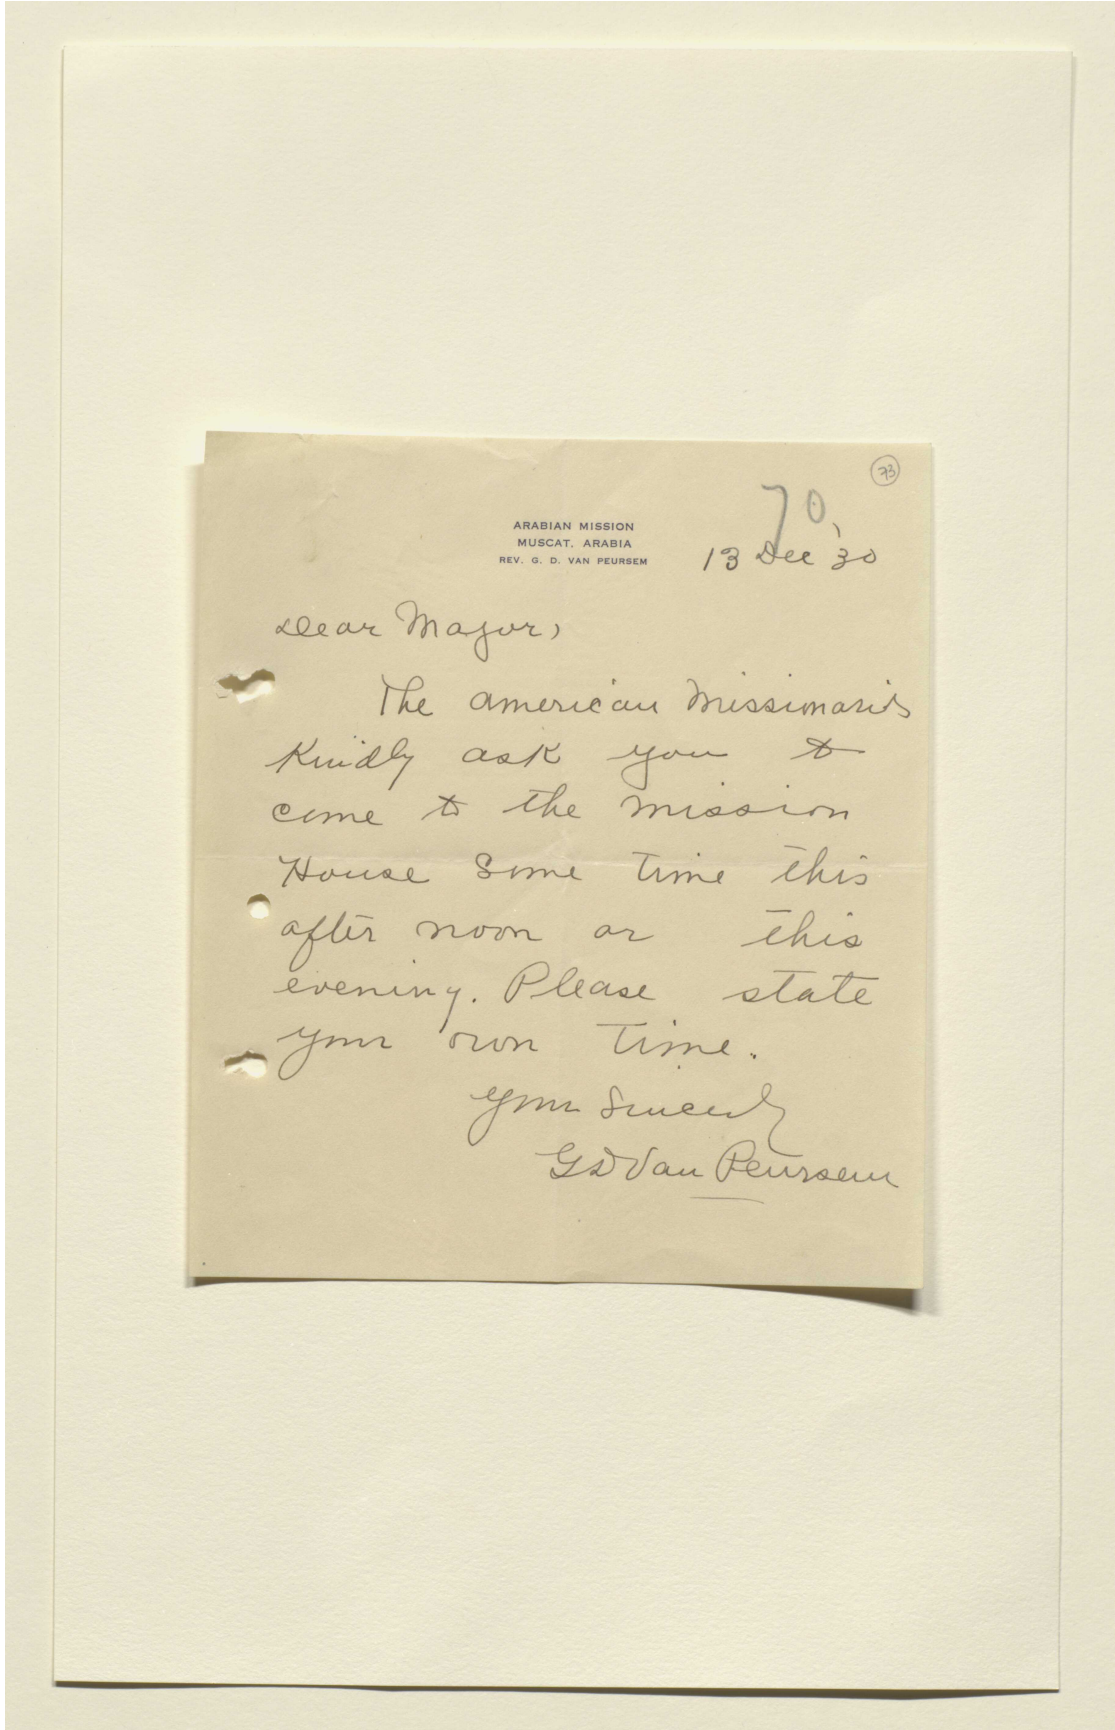 73
70,
ARABIAN MISSION
MUSCAT, ARABIA
REV. G. D. VAN PEURSEM
13 Dec '30
Dear Major,
The American Missionaries
Kindly ask you to
come to the mission
House Some time this
after noon or this
evening. Please state
your own time.
Yours Sincerely
G D Van Peursem